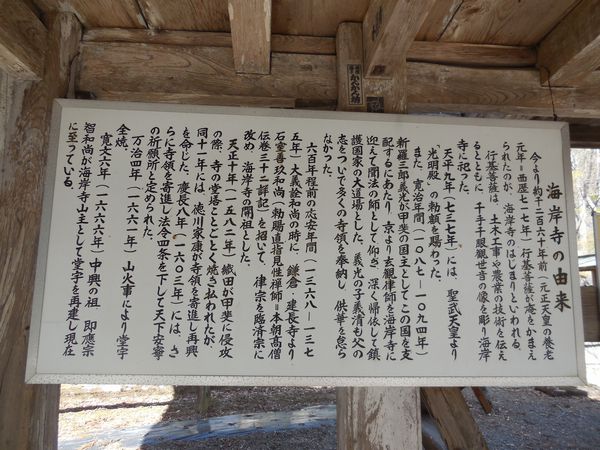 海岸寺の由来
今より約千二百六十年前(元正天皇の養老
元年=西歴七一七年)行基菩薩が庵をかまえ
られたのが、海岸寺のはじまりといわれる。
行基菩薩は、土木工事や農業の技術を伝え
るとともに、千手千眼観世音の像を彫り海岸
寺に祀った。
天平九年(七三七年)には、聖武天皇より
「光明殿」の勅額を賜わった。
また、寛治年間(一〇八七-一〇九四年)
新羅三郎義光が甲斐の国主としてこの国を支
配するにあたり、京より玄観律師を海岸寺に
迎えて聞法の師として仰ぎ、深く帰依して鎮
護国家の大道場とした。義光の子義清も父の
志をついで多くの寺領を奉納し、供華を怠ら
なかった。
六百年程前の応安年間(一三六八-一三七
五年)大義詮和尚の時に、鎌倉・建長寺より
石室善玖和尚(勅賜直指見性禅師=本朝高僧
伝巻三十三詳記)を招いて、律宗を臨済宗に
改め、海岸寺の開祖とした。
天正十年(一五八二年)織田が甲斐に侵攻
の際、寺の堂塔ことごとく焼き払われたが、
同十一年には、徳川家康が寺領を寄進し再興
を命じた。慶長八年(一六〇三年)には、さ
らに寺領を寄進し法令四条を下して天下安寧
の祈願所と定められた。
万治四年(一六六一年)山火事により堂宇
全焼。
寛文六年(一六六六年)中興の祖、即應宗
智和尚が海岸寺山主として堂宇を再建し現在
に至っている。